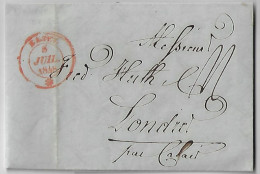 Messieurs
Fred Huth & C
Londres
par Calais
8
JUIL